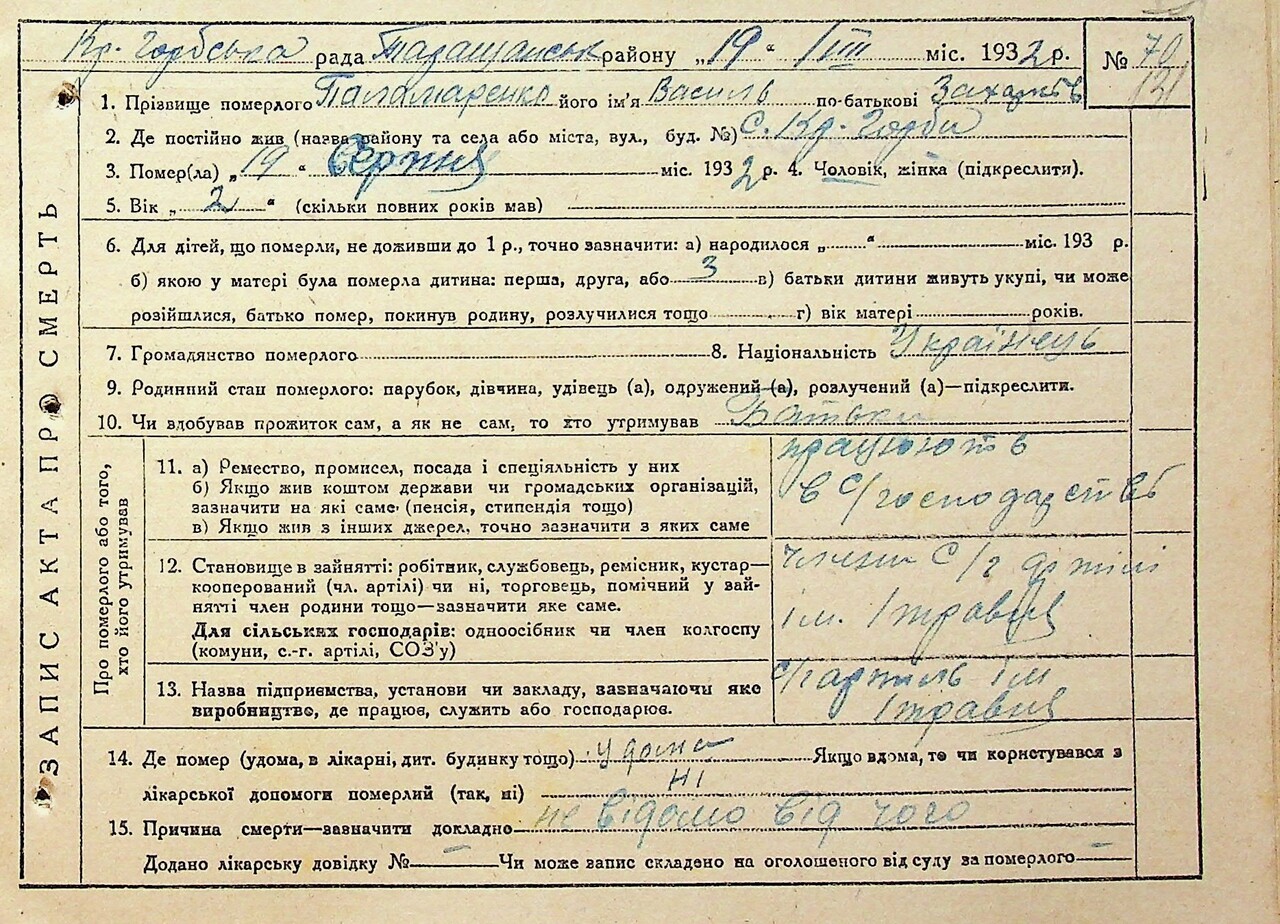 Кр. Горбська рада Таращанськ району „19“ VIII міс. 1932 р. № 70
121
1. Прізвище померлого Паламаренко його ім'я Василь по-батькові Захарів
2. Де постійно жив (назва району та села або міста, вул., буд. №) С. Кр. Горби
3. Помер(ла) „19“ Серпня міс. 1932 р. 4. Чоловік, жінка (підкреслити).
5. Вік „2“ (скільки повних років мав)
ЗАПИС АКТА ПРО СМЕРТЬ
6. Для дітей, що померли, не доживши до 1 р., точно зазначити: а) народилося „ “ міс. 193 р.
б) якою у матері була померла дитина: перша, друга, або 3 в) батьки дитини живуть укупі, чи може
розійшлися, батько помер, покинув родину, розлучилися тощо г) вік матері років.
7. Громадянство померлого 8. Національність Українець
9. Родинний стан померлого: парубок, дівчина, удівець (а), одружений (а), розлучений (а)—підкреслити.
10. Чи здобував прожиток сам, а як не сам, то хто утримував Батьки
Про померлого або того,
хто його утримував
11. а) Ремество, промисел, посада і спеціяльність у них
б) Якщо жив коштом держави чи громадських організацій,
зазначити на які саме (пенсія, стипендія тощо)
в) Якщо жив з інших джерел, точно зазначити з яких саме
працюють
в с/господарстві
12. Становище в зайнятті: робітник, службовець, ремісник, кустар-
кооперований (чл. артілі) чи ні, торговець, помічний у зай-
нятті член родини тощо—зазначити яке саме.
Для сільських господарів: одноосібник чи член колгоспу
(комуни, с.-г. артілі, СОЗ'у)
члени С/г артілі
ім. 1 травня
13. Назва підприємства, установи чи закладу, зазначаючи яке
виробництво, де працює, служить або господарює.
с/артіль ім
1 травня
14. Де помер (удома, в лікарні, дит. будинку тощо) удома Якщо вдома, то чи користувався з
лікарської допомоги померлий (так, ні) ні
15. Причина смерти—зазначити докладно не відомо від чого
Додано лікарську довідку № — Чи може запис складено на оголошеного від суду за померлого —